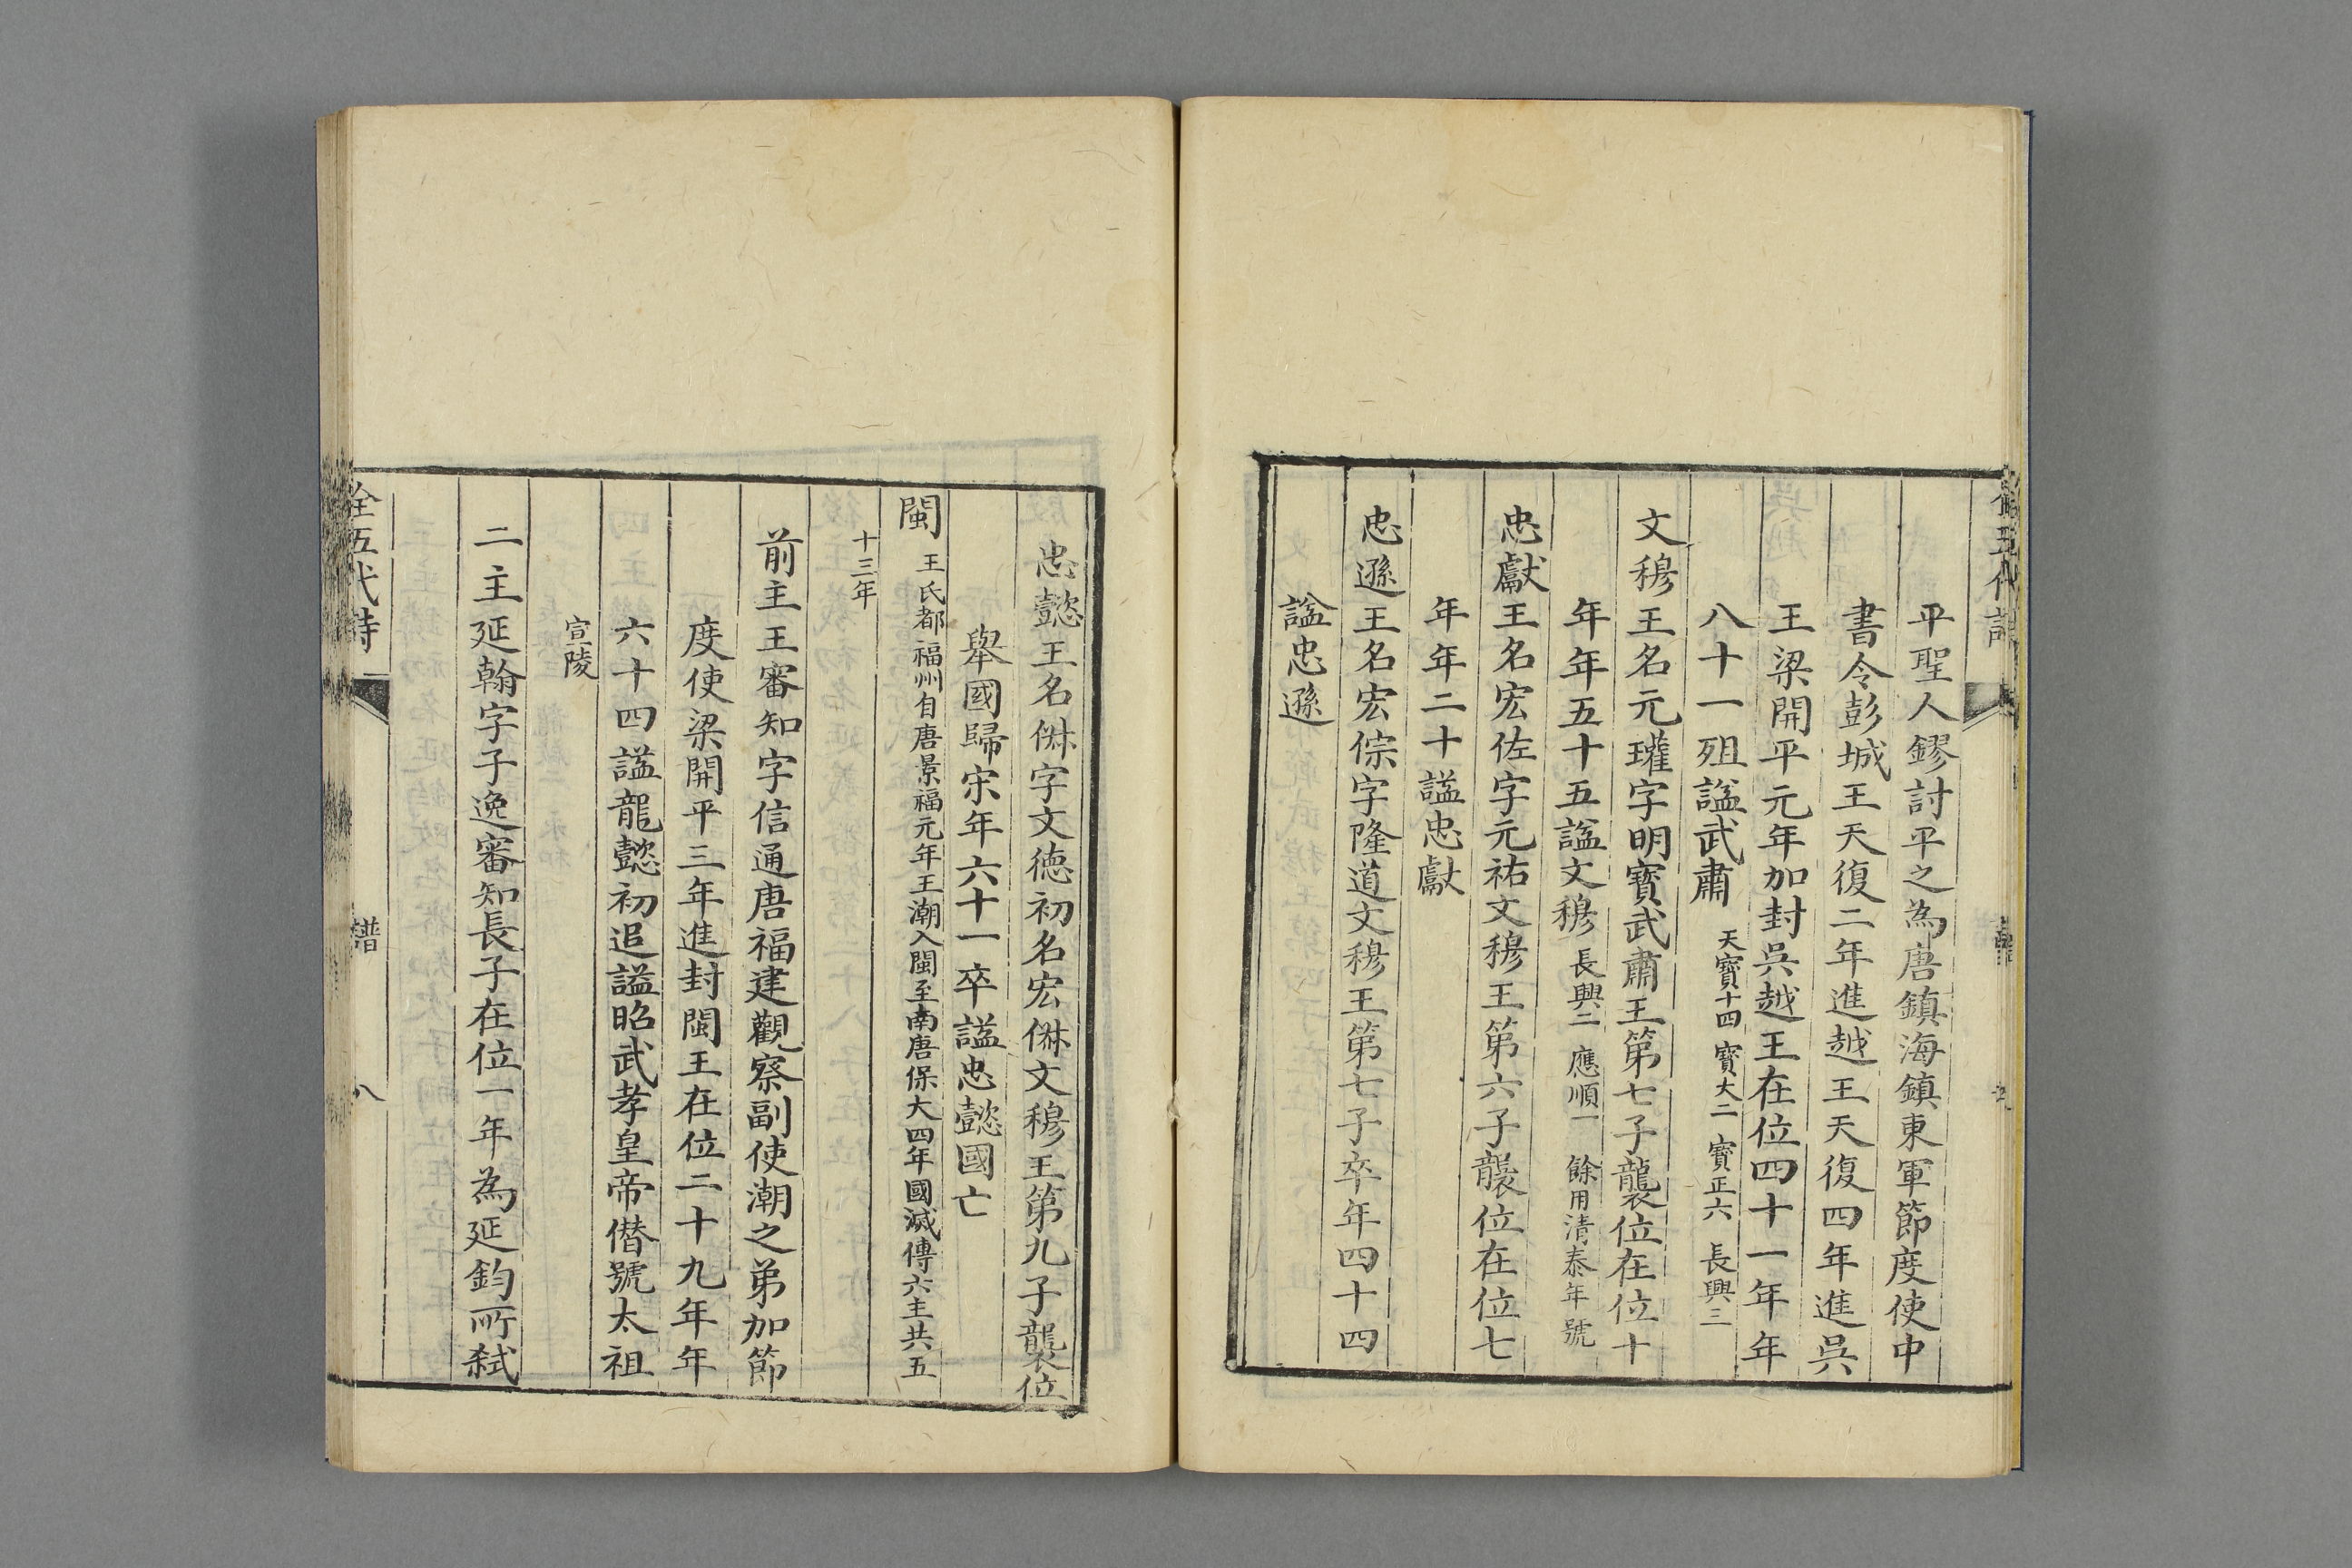 平聖人鏐討平之為唐鎮海鎮東軍節度使中
書令彭城王天復二年進越王天復四年進吳
王梁開平元年加封吳越王在位四十一年年
八十一殂諡武肅 天寶十四 寶大二 寶正六 長興三
文穆王名元瓘字明寶武肅王第七子襲位在位十
年年五十五諡文穆 長興二 應順一 餘用清泰年號
忠獻王名宏佐字元祐文穆王第六子襲位在位七
年年二十諡忠獻
忠遜王名宏倧字隆道文穆王第七子卒年四十四
諡忠遜
忠懿王名俶字文德初名宏俶文穆王第九子襲位
舉國歸宋年六十一卒諡忠懿國亡
閩 王氏都福州自唐景福元年王潮入閩至南唐保大四年國滅傳六主共五
十三年
前主王審知字信通唐福建觀察副使潮之弟加節
度使梁開平三年進封閩王在位二十九年年
六十四諡龍懿初追諡昭武孝皇帝僭號太祖
宣陵
二主延翰字子逸審知長子在位一年為延鈞所弒
全五代詩 譜 八